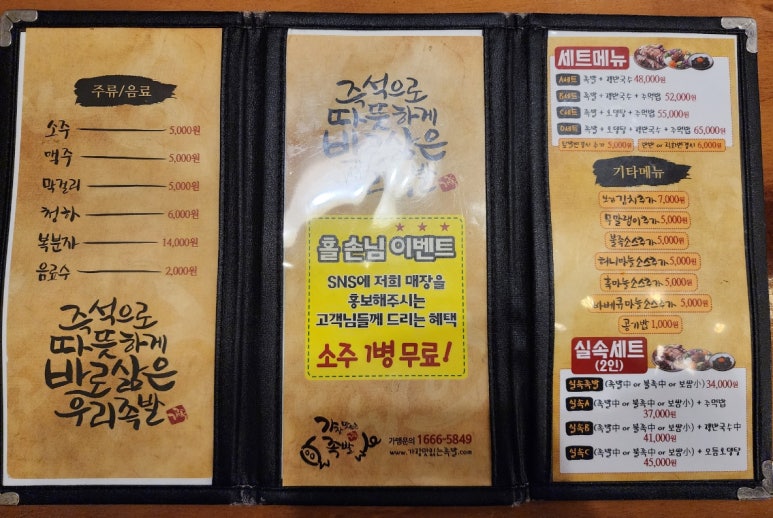 주류/음료
소주 5,000원
맥주 5,000원
막걸리 5,000원
청하 6,000원
복분자 14,000원
음료수 2,000원
즉석으로
따뜻하게
바로삶은
우리족발
즉석으로
따뜻하게
바로삶은
홀 손님 이벤트
SNS에 저희 매장을
홍보해주시는
고객님들께 드리는 혜택
소주 1병 무료!
족발
가맹문의 1666-5849
www.가장맛있는족발.com
세트메뉴
A세트 족발 + 쟁반국수 48,000원
B세트 족발 + 쟁반국수 + 주먹밥 52,000원
C세트 족발 + 오뎅탕 + 주먹밥 55,000원
D세트 족발 + 오뎅탕 + 쟁반국수 + 주먹밥 65,000원
추가 5,000원
변경시 6,000원
기타메뉴
보쌈김치추가 7,000원
무말랭이추가 5,000원
불족소스추가 5,000원
허니마늘소스추가 5,000원
흑마늘소스추가 5,000원
바베큐마늘소스추가 5,000원
공기밥 1,000원
실속세트
(2인)
실속족발 (족발中 or 불족中 or 보쌈小) 34,000원
실속A (족발中 or 불족中 or 보쌈小) + 주먹밥
37,000원
실속B (족발中 or 불족中 or 보쌈小) + 쟁반국수中
41,000원
실속C (족발中 or 불족中 or 보쌈小) + 모듬오뎅탕
45,000원